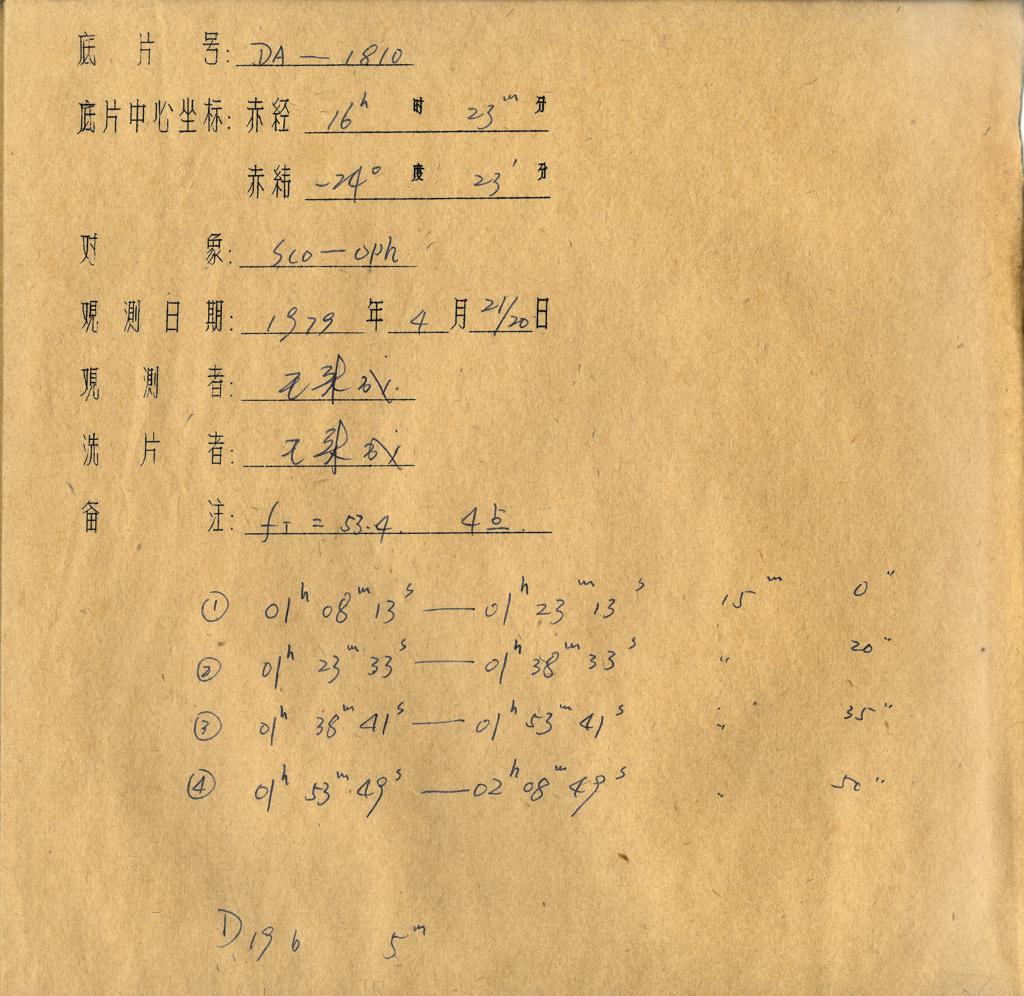 底片号: DA — 1810
底片中心坐标: 赤经 16ʰ 时 23ᵐ 分
赤纬 -24° 度 23′ 分
对象: Sco — Oph
观测日期: 1979 年 4 月 21/20 日
观测者:
洗片者:
备注: f_T = 53.4. 4点.
① 01ʰ 08ᵐ 13ˢ — 01ʰ 23ᵐ 13ˢ 15ᵐ 0″
② 01ʰ 23ᵐ 33ˢ — 01ʰ 38ᵐ 33ˢ 〃 20″
③ 01ʰ 38ᵐ 41ˢ — 01ʰ 53ᵐ 41ˢ 〃 35″
④ 01ʰ 53ᵐ 49ˢ — 02ʰ 08ᵐ 49ˢ 〃 50″
D19b 5ᵐ